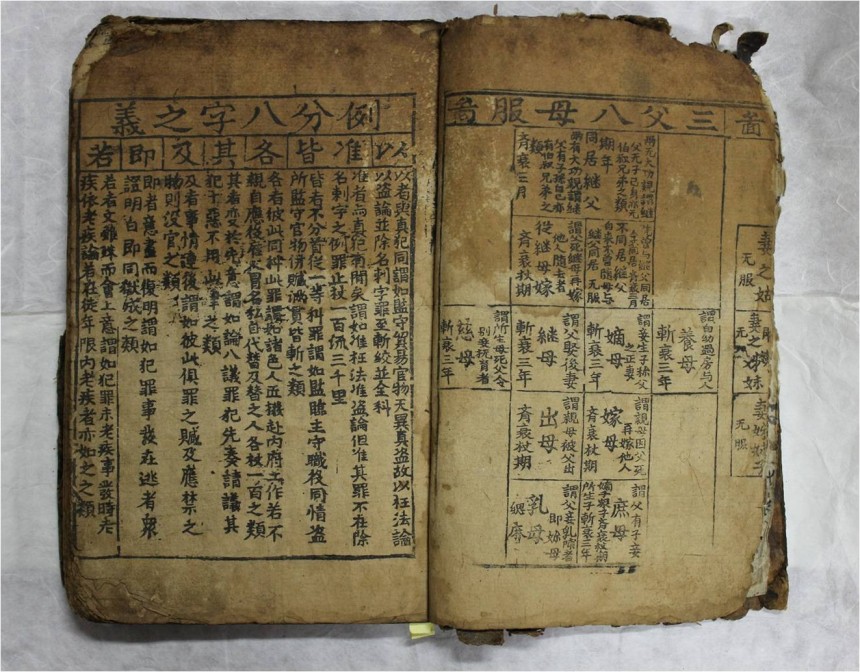 啚
妻之姑
无服
妻之姊妹
无服
三父八母服啚
同居継父
期年
齊衰三月
不同居継父
継父同居
无服
謂父死継母再嫁
他人随去者
從継母嫁
齊衰杖期
謂自幼過房与人
養母
斬衰三年
謂妾生子称父
之正妻
嫡母
斬衰三年
謂父娶後妻
継母
斬衰三年
謂所生母死父令
別妾撫育者
慈母
斬衰三年
謂親母因父死
再嫁他人
嫁母
齊衰杖期
謂親母被父出
出母
齊衰杖期
謂父有子妾
庶母
嫡子衆子齊衰杖期
所生子斬衰三年
謂父妾乳哺者
即奶母
乳母
緦麻
例分八字之義
以准皆各其及即若
以者與真犯同謂如監守貿易官物无異真盗故以枉法論
以盗論並除名刺字罪至斬絞並全科
准者與真犯有間矣謂如准枉法准盗論但准其罪不在除
名刺字之例罪止杖一百流三千里
皆者不分首從一等科罪謂如監臨主守職役同情盗
所監守官物併贓滿貫皆斬之類
各者彼此同科此罪謂如諸色人匠撥赴内府工作若不
親自應役雇人冒名私自代替及替之人各杖一百之類
其者变於先意謂如論八議罪犯先奏請議其
犯十惡不用此律之類
及者事情連後謂如彼此俱罪之贓及應禁之
物則没官之類
即者意盡而復明謂如犯罪事發在逃者衆
證明白即同獄成之類
若者文雖殊而會上意謂如犯罪未老疾事發時老
疾依老疾論若在徒年限内老疾者亦如之之類